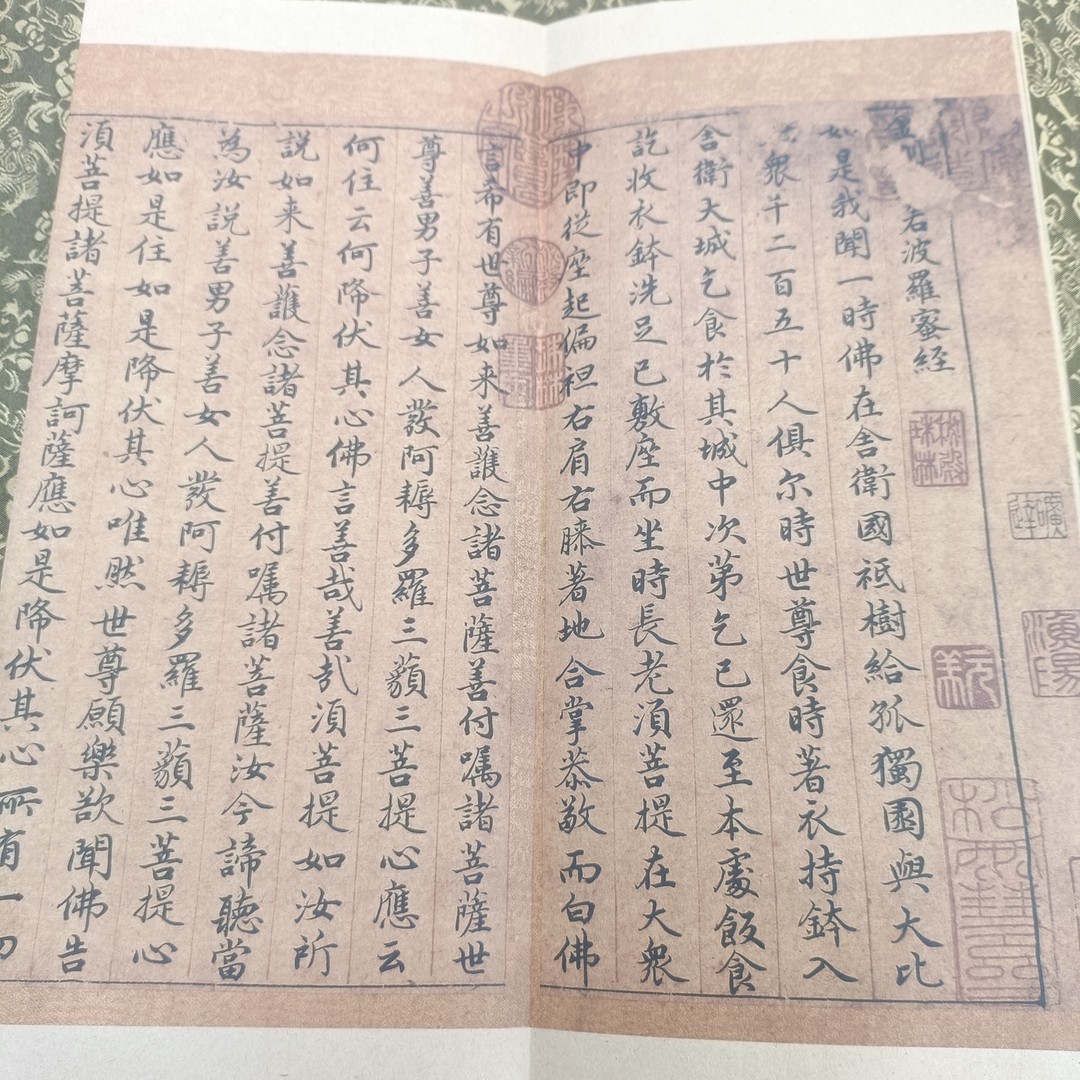 金若波羅蜜経
如是我聞一時佛在舎衛國祇樹給孤獨園與大比
衆千二百五十人俱尓時世尊食時著衣持鉢入
舎衛大城乞食於其城中次第乞已還至本處飯食
訖收衣鉢洗足已敷座而坐時長老湏菩提在大衆
中即從座起偏袒右肩右膝著地合掌恭敬而白佛
言希有世尊如来善護念諸菩薩善付囑諸菩薩世
尊善男子善女人發阿耨多羅三藐三菩提心應云
何住云何降伏其心佛言善哉善哉湏菩提如汝所
説如来善護念諸菩提善付囑諸菩薩汝今諦聽當
為汝説善男子善女人發阿耨多羅三藐三菩提心
應如是住如是降伏其心唯然世尊願樂欲聞佛告
湏菩提諸菩薩摩訶薩應如是降伏其心所有一切
秘殿珠林
漁陽